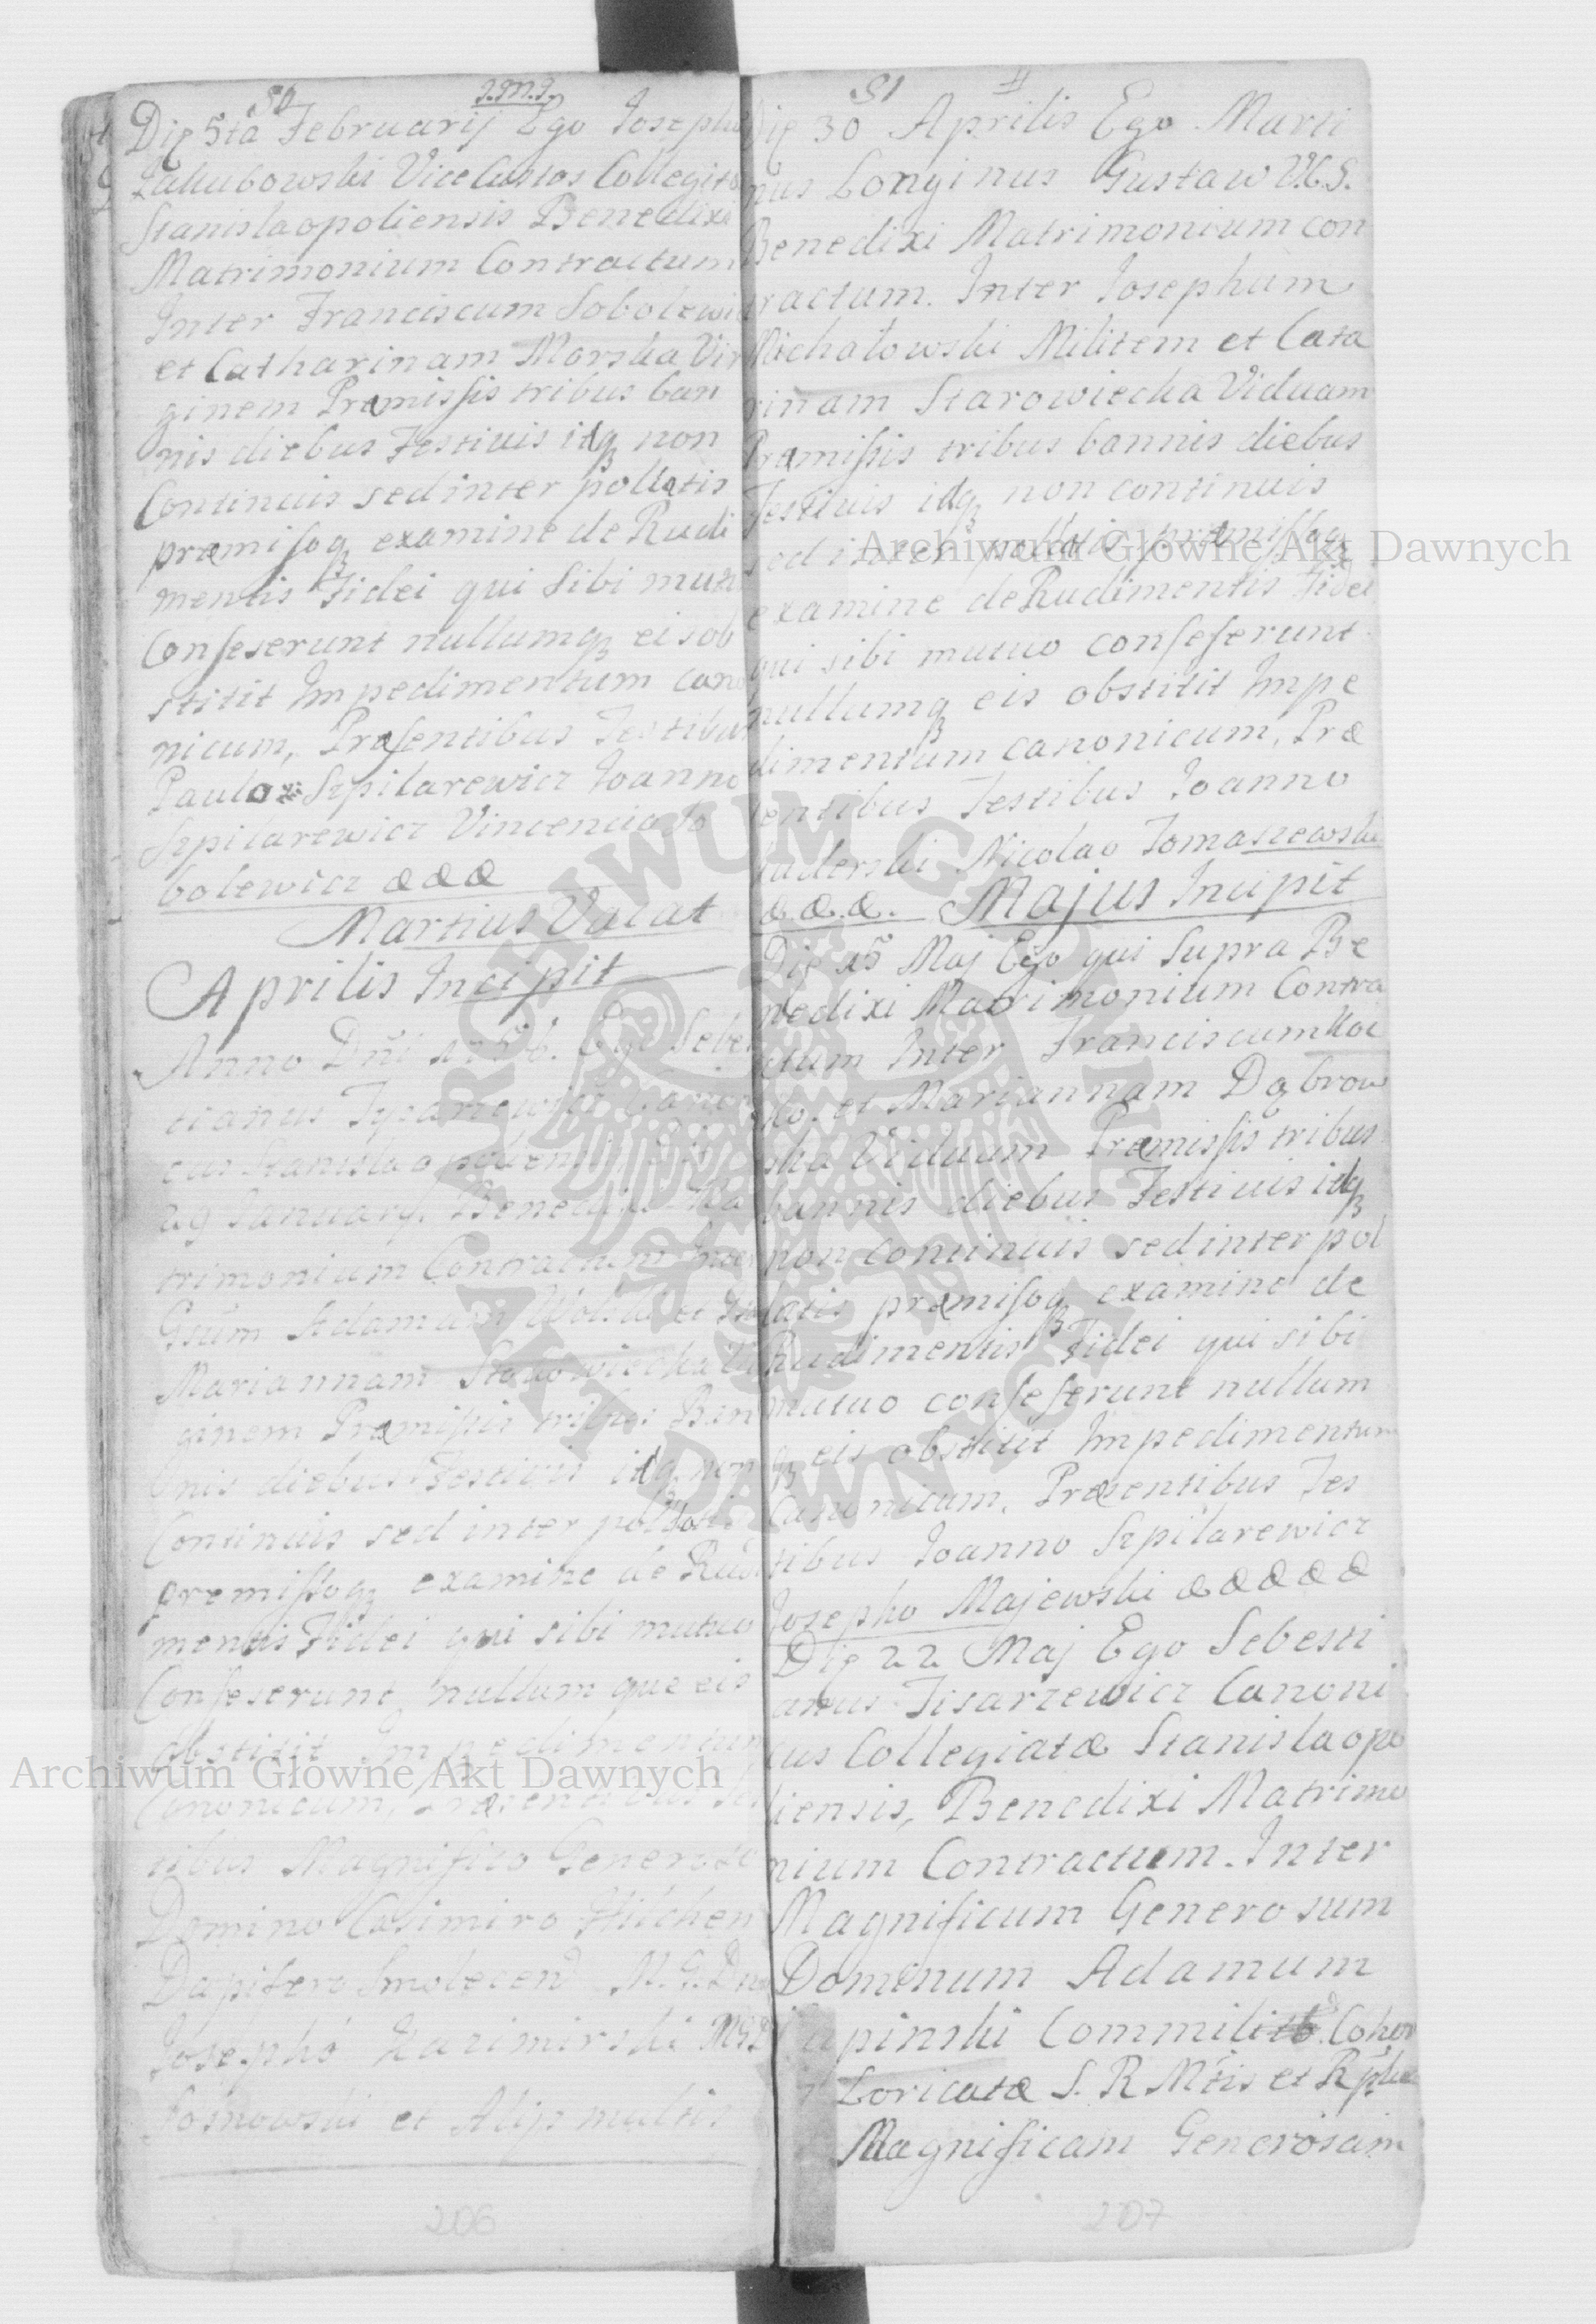 50 J.M.J.
Die 5ta Februarij Ego Josephus
Jakubowski Vice Custos Collegiato
Stanislaopoliensis Benedixi
Matrimonium Contractum
Inter Franciscum Sobolewi
et Catharinam Morska Vir
ginem Præmissis tribus ban
nis diebus Festivis idq non
Continuis sed inter pollatis
præmisoq examine de Rudi
mentis Fidei qui Sibi mutu
Conseserunt nullumq eis ob
stitit Impedimentum cano
nicum, Præsentibus Testibus
Paulo Szpilarewicz Joanno
Szpilarewicz Vincencio So
bolewicz æ æ æ
Martius Vacat
Aprilis Incipit
Anno Dni Ego Sebes
tianus Canoni
cus Stanislaopoliensis
29 January Benedixi Ma
trimonium Contractum Inter
Gsum Adamum Wolski et
Mariannam Vir
ginem Præmissis tribus Ban
nis diebus Festivis idq non
Continuis sed inter pollatis
premissoq examine de Rudi
mentis Fidei qui sibi mutuo
Conseserunt nullum que eis
obstitit Impedimentum
Canonicum, Præsentibus Tes
tibus Magnifico Generoso
Domino Casimiro Hilchen
Dapifero Smolecen M. G. Dno
Josepho Kazimirski MGD
Sosnowski et Alijs multis
206
51
Die 30 Aprilis Ego Marti
nus Longinus Gustaw V.C.S.
Benedixi Matrimonium con
tractum. Inter Josephum
Michałowski Militem et Cata
rinam Starowiecka Viduam
Præmissis tribus bannis diebus
Festivis idq non continuis
sed inter pollatis præmissoq
examine de Rudimentis Fidei
qui sibi mutuo conseserunt
nullumq eis obstitit Impe
dimentum canonicum, Præ
sentibus Testibus Joanno
Nicolao Tomaszewski
æ. æ. æ. Majus Incipit
Die 15 Maj Ego qui Supra Be
nedixi Matrimonium Contra
ctum Inter Franciscum Koc
ko, et Mariannam Dąbrow
ska Viduam Præmissis tribus
bannis diebus Festivis idq
non continuis sed inter pol
latis præmisoq examine de
Rudimentis Fidei qui sibi
mutuo conseserunt nullum
q eis obstitit Impedimentum
Canonicum, Præsentibus Tes
tibus Joanno Szpilarewicz
Josepho Majewski æ æ æ æ æ
Die 22 Maj Ego Sebesti
anus Tisarzewicz Canoni
cus Collegiatæ Stanislaopo
liensis, Benedixi Matrimo
nium Contractum. Inter
Magnificum Generosum
Dominum Adamum
Commilit. Cohor
Loricatæ S. R Mtis et Rplicæ
Magnificam Generosam
207
Archiwum Główne Akt Dawnych
Archiwum Główne Akt Dawnych
ARCHIWUM GŁÓWNE AKT DAWNYCH